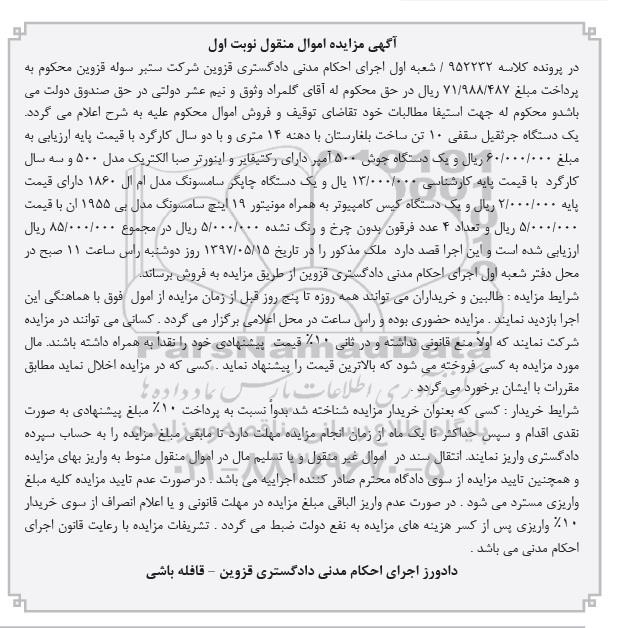 آگهی مزایده اموال منقول نوبت اول
در پرونده کلاسه ۹۵۲۲۳۲ / شعبه اول اجرای احکام مدنی دادگستری قزوین شرکت ستبر سوله قزوین محکوم به
پرداخت مبلغ ۷۱/۹۸۸/۴۸۷ ریال در حق محکوم له آقای گلمراد وثوق و نیم عشر دولتی در حق صندوق دولت می
باشدو محکوم له جهت استیفا مطالبات خود تقاضای توقیف و فروش اموال محکوم علیه به شرح اعلام می گردد.
یک دستگاه جرثقیل سقفی ۱۰ تن ساخت بلغارستان با دهنه ۱۴ متری و با دو سال کارگرد با قیمت پایه ارزیابی به
مبلغ ۶۰/۰۰۰/۰۰۰ ریال و یک دستگاه جوش ۵۰۰ آمپر دارای رکتیفایر و اینورتر صبا الکتریک مدل ۵۰۰ و سه سال
کارگرد با قیمت پایه کارشناسی ۱۳/۰۰۰/۰۰۰ یال و یک دستگاه چاپگر سامسونگ مدل ام ال ۱۸۶۰ دارای قیمت
پایه ۲/۰۰۰/۰۰۰ ریال و یک دستگاه کیس کامپیوتر به همراه مونیتور ۱۹ اینچ سامسونگ مدل بی ۱۹۵۵ ان با قیمت
۵/۰۰۰/۰۰۰ ریال و تعداد ۴ عدد فرقون بدون چرخ و رنگ نشده ۵/۰۰۰/۰۰۰ ریال در مجموع ۸۵/۰۰۰/۰۰۰ ریال
ارزیابی شده است و این اجرا قصد دارد ملک مذکور را در تاریخ ۱۳۹۷/۰۵/۱۵ روز دوشنبه راس ساعت ۱۱ صبح در
محل دفتر شعبه اول اجرای احکام مدنی دادگستری قزوین از طریق مزایده به فروش برساند.
شرایط مزایده : طالبین و خریداران می توانند همه روزه تا پنج روز قبل از زمان مزایده از امول فوق با هماهنگی این
اجرا بازدید نمایند . مزایده حضوری بوده و راس ساعت در محل اعلامی برگزار می گردد . کسانی می توانند در مزایده
شرکت نمایند که اولاً منع قانونی نداشته و در ثانی ۱۰٪ قیمت پیشنهادی خود را نقداً به همراه داشته باشند. مال
مورد مزایده به کسی فروخته می شود که بالاترین قیمت را پیشنهاد نماید . کسی که در مزایده اخلال نماید مطابق
مقررات با ایشان برخورد می گردد .
شرایط خریدار : کسی که بعنوان خریدار مزایده شناخته شد بدواً نسبت به پرداخت ۱۰٪ مبلغ پیشنهادی به صورت
نقدی اقدام و سپس حداکثر تا یک ماه از زمان انجام مزایده مهلت دارد تا مابقی مبلغ مزایده را به حساب سپرده
دادگستری واریز نمایند. انتقال سند در اموال غیر منقول و یا تسلیم مال در اموال منقول منوط به واریز بهای مزایده
و همچنین تایید مزایده از سوی دادگاه محترم صادر کننده اجراییه می باشد . در صورت عدم تایید مزایده کلیه مبلغ
واریزی مسترد می شود . در صورت عدم واریز الباقی مبلغ مزایده در مهلت قانونی و یا اعلام انصراف از سوی خریدار
۱۰٪ واریزی پس از کسر هزینه های مزایده به نفع دولت ضبط می گردد . تشریفات مزایده با رعایت قانون اجرای
احکام مدنی می باشد .
دادورز اجرای احکام مدنی دادگستری قزوین – قافله باشی
ParsNamadData
۰۲۱-۸۸۳۴۹۶۷۰-۵